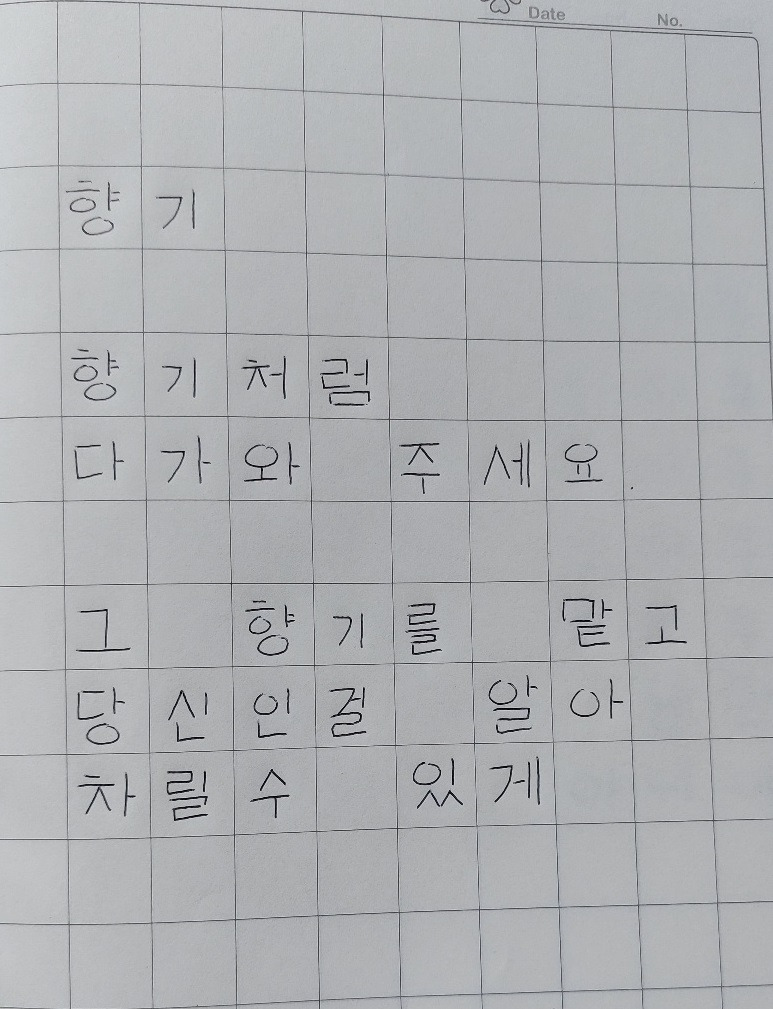 Date No.
향기
향기처럼
다가와 주세요.
그 향기를 맡고
당신인걸 알아
차릴수 있게